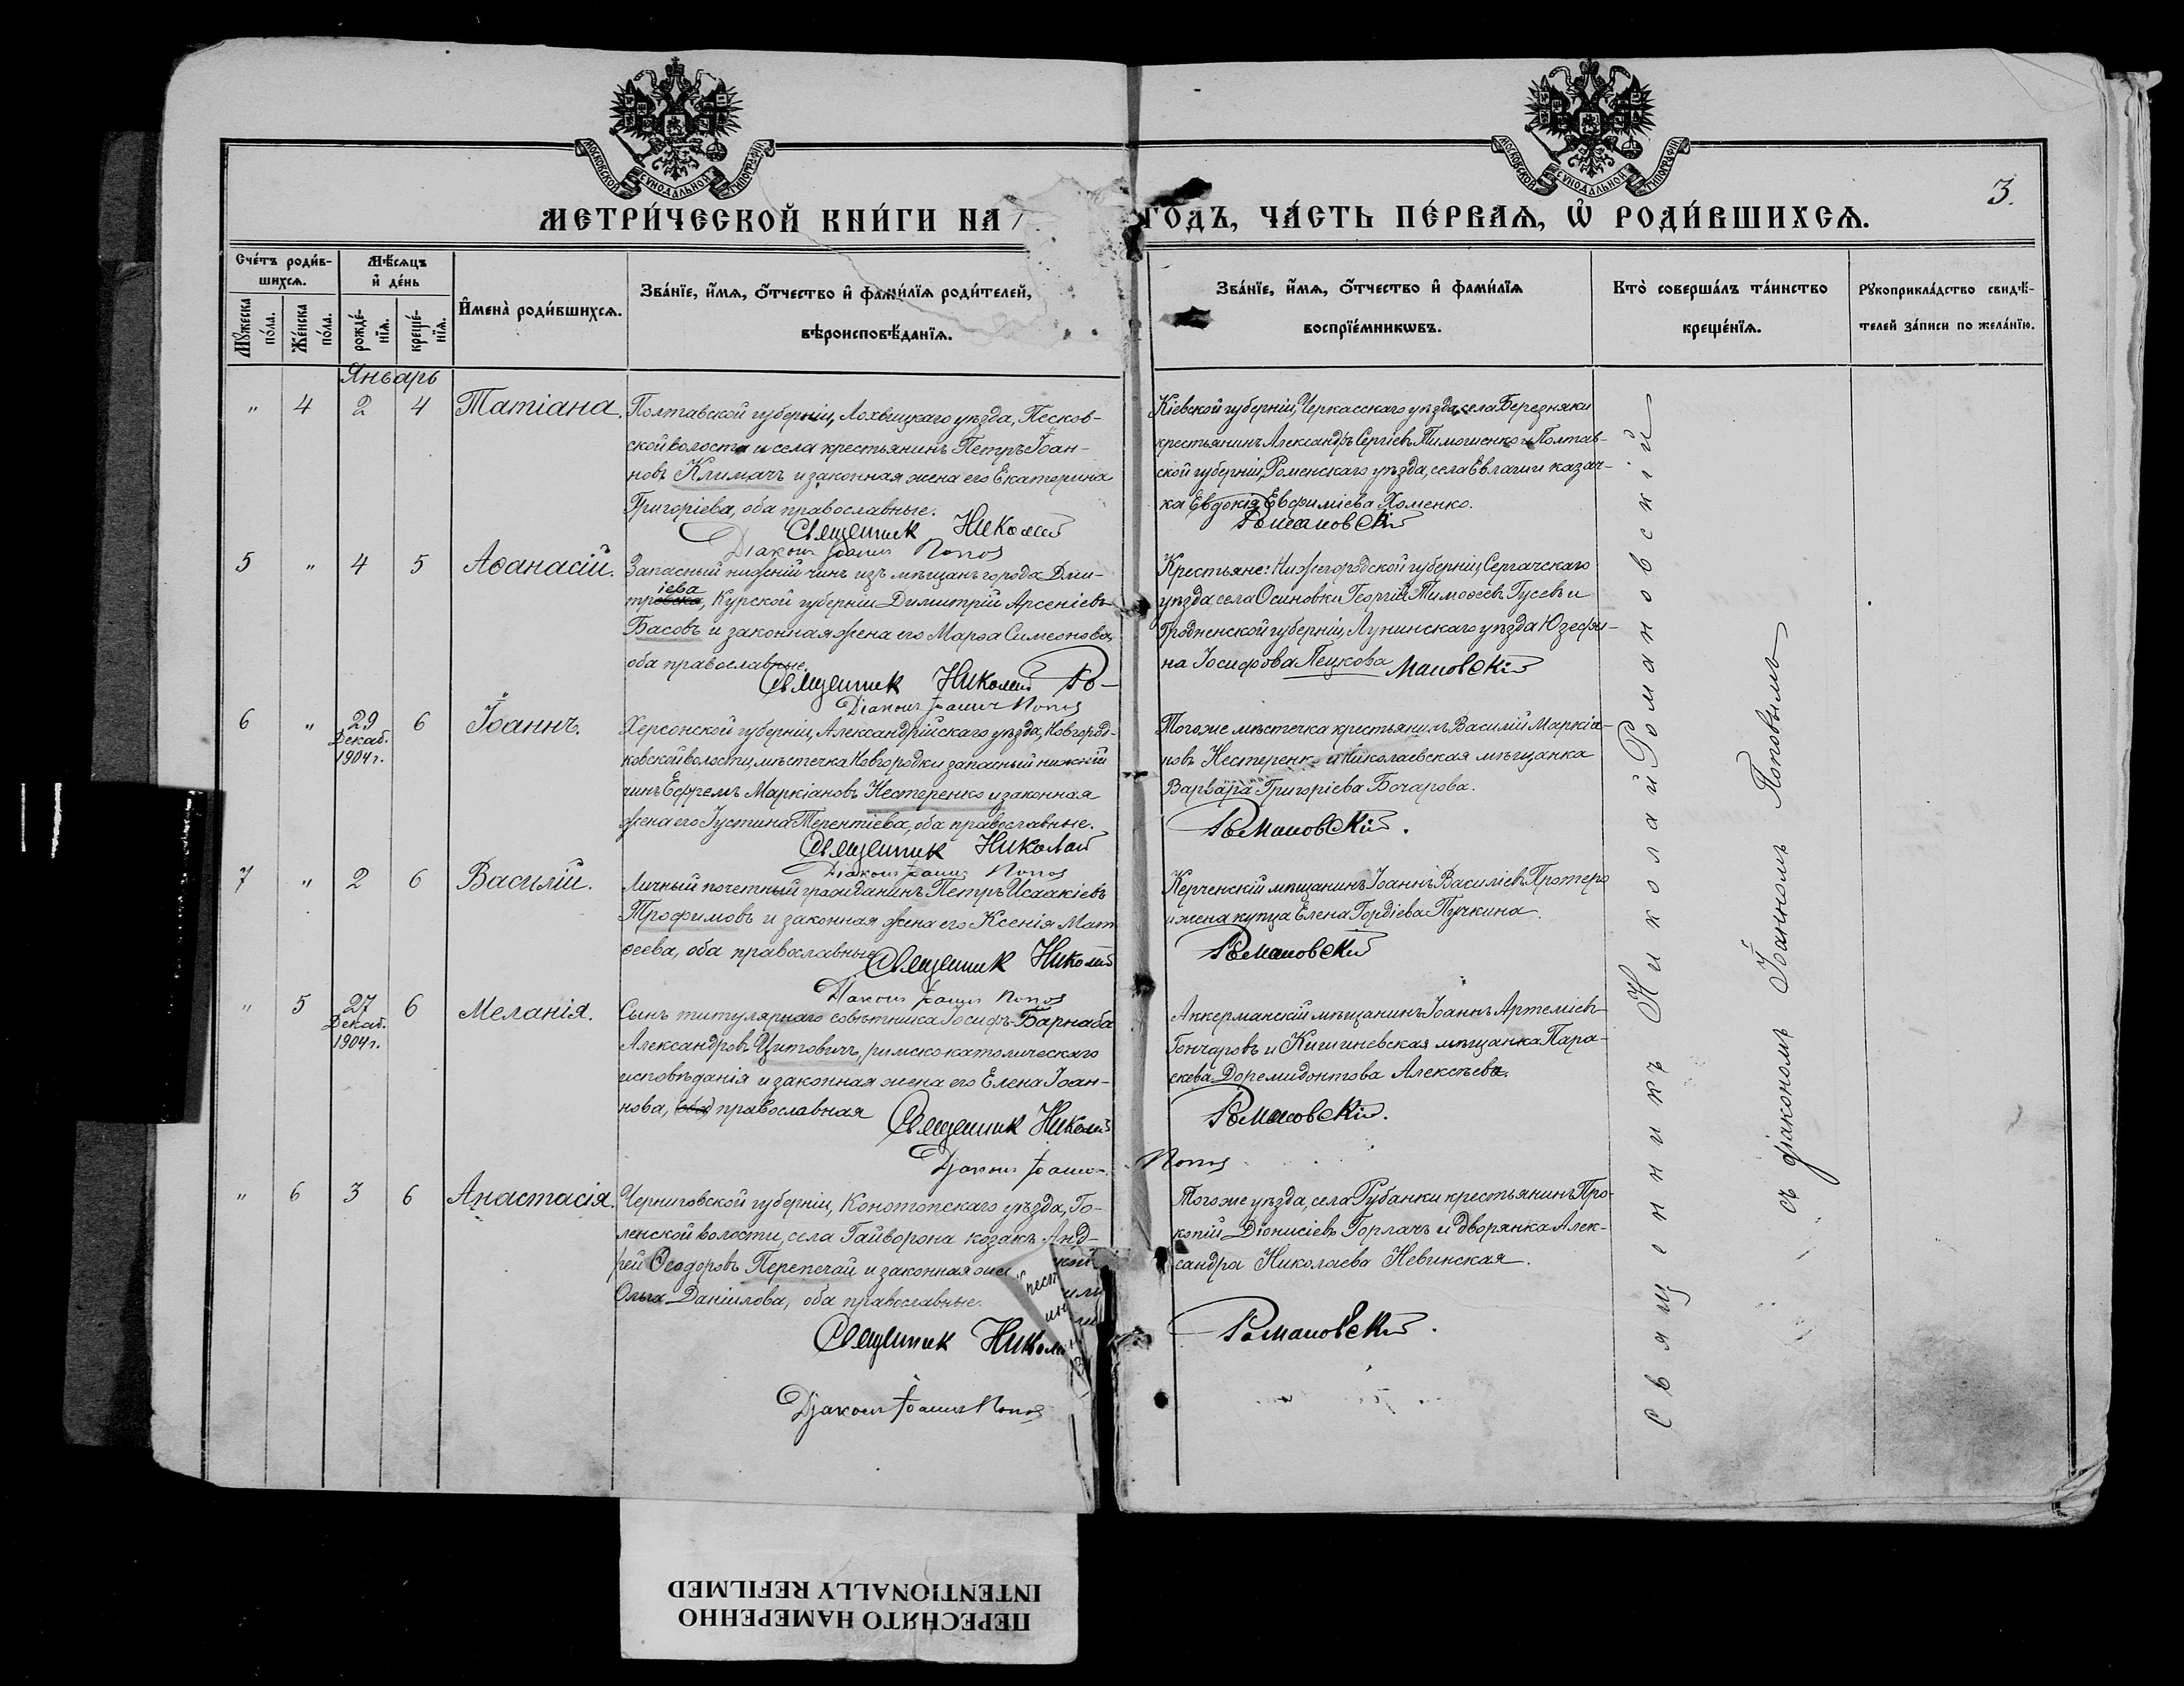 МОСКОВСКОЙ СѴНОДАЛЬНОЙ ТИПОГРАФІИ
МОСКОВСКОЙ СѴНОДАЛЬНОЙ ТИПОГРАФІИ
3.
МЕТРИ́ЧЕСКОЙ КНИ́ГИ НА 1
ГОДЪ, ЧА́СТЬ ПЕ́РВАѦ, Ѽ РОДИ́ВШИХСѦ.
Сче́тъ роди́в-
шихсѧ.
Мꙋ́жеска по́ла.
Же́нска по́ла.
Мѣ́сѧцъ
и҆ де́нь
рожде́-
нїѧ.
креще́-
нїѧ.
И҆мена̀ роди́вшихсѧ.
Зва́нїе, и҆́мѧ, ѻ҆́тчество и҆ фами́лїѧ роди́телей,
вѣроисповѣ́данїѧ.
Зва́нїе, и҆́мѧ, ѻ҆́тчество и҆ фами́лїѧ
воспрїе́мникѡвъ.
Кто̀ соверша́лъ та́инство
креще́нїѧ.
Рꙋкоприкла́дство свидѣ́-
телей за́писи по жела́нїю.
Январь
" 4 2 4 Татіана.
Полтавской губерніи, Лохвицкаго уѣзда, Песков-
ской волости и села крестьянинъ Петръ Іоан-
новъ Климачъ и законная жена его Екатерина
Григоріева, оба православные.
Священник Николай
Діакон Іоанн Попов
Кіевской губерніи, Черкасскаго уѣзда, села Березняки
крестьянинъ Александръ Сергіевъ Тимошенко и Полтав-
ской губерніи, Роменскаго уѣзда, села Евлаши казач-
ка Евдокія Евфиміева Хоменко.
Романовскій
5 " 4 5 Аѳанасій.
Запасный нижній чинъ изъ мѣщанъ города Дми-
іева
тровска, Курской губерніи Димитрій Арсеніевъ
Басовъ и законная жена его Марѳа Симеонова,
оба православные.
Священник Николай Ро-
Діакон Іоанн Попов
Крестьяне: Нижегородской губерніи, Сергачскаго
уѣзда, села Осиновки Георгій Тимоѳеевъ Гусевъ и
Гродненской губерніи, Лунинскаго уѣзда Юзефи-
на Іосифова Пецкова
мановскій
6 " 29 Декаб. 1904 г. 6 Іоаннъ.
Херсонской губерніи, Александрійскаго уѣзда, Новгород-
ковской волости, мѣстечка Новгородки запасный нижній
чинъ Ефремъ Маркіановъ Нестеренко и законная
жена его Іустина Терентіева, оба православные.
Священник Николай
Діакон Іоанн Попов
Того же мѣстечка крестьянинъ Василій Маркіа-
новъ Нестеренко и Николаевская мѣщанка
Варвара Григоріева Бочарова.
Романовскій.
7 " 2 6 Василій.
Личный почетный гражданинъ Петръ Исаакіевъ
Трофимовъ и законная жена его Ксенія Мат
ѳеева, оба православные
Священник Николай
Діакон Іоанн Попов
Керченскій мѣщанинъ Іоаннъ Василіевъ Протеро
и жена купца Елена Гордіева Пучкина.
Романовскій
" 5 27 Декаб. 1904 г. 6 Меланія.
Сынъ титулярнаго совѣтника Іосифъ-Барнаба
Александровъ Цитовичъ, римско католическаго
исповѣданія и законная жена его Елена Іоан-
нова, (оба) православная
Священник Николай
Діакон Іоанн Попов
Аккерманскій мѣщанинъ Іоаннъ Артеміевъ
Гончаровъ и Кишиневская мѣщанка Пара-
скева Доремидонтова Алексѣева.
Романовскій.
" 6 3 6 Анастасія.
Черниговской губерніи, Конотопскаго уѣзда, Го-
ленской волости, села Гайворона козакъ Анд-
рей Ѳеодоровъ Перепечай и законная жен
Ольга Даніилова, оба православные.
Священник Николай
Діакон Іоанн Попов
Того же уѣзда, села Рубанки крестьянинъ Про-
копій Діонисіевъ Горлачъ и дворянка Алек-
сандра Николаева Невинская.
Романовскій.
Священникъ Николай Романовскій
съ діакономъ Іоанномъ Поповымъ
ПЕРЕСНЯТО НАМЕРЕННО
INTENTIONALLY REFILMED